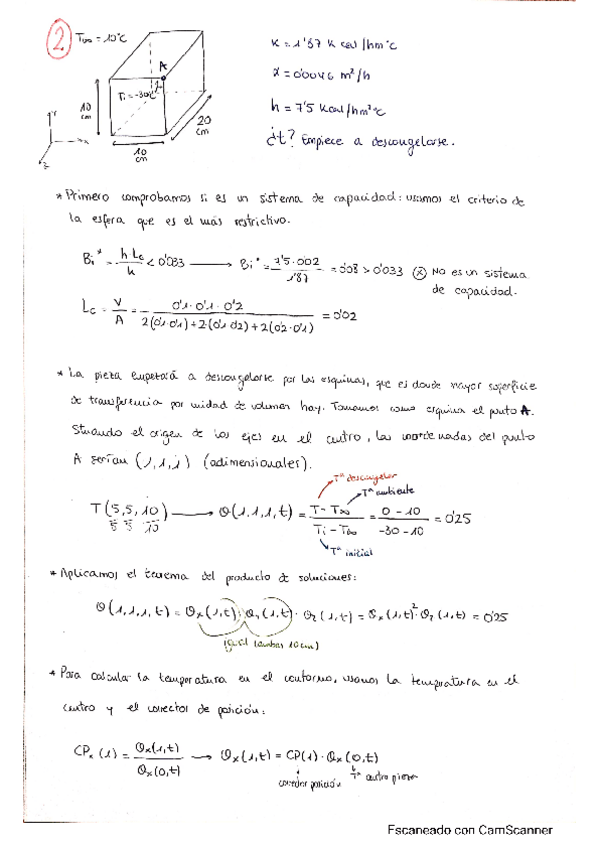 2. T∞ = 10°C
A
Ti = -30°C
10 cm
20 cm
10 cm
Y
x
z
K = 1'87 Kcal/hm°C
α = 0'0046 m²/h
h = 7'5 Kcal/hm²°C
¿t? Empiece a descongelarse.
* Primero comprobamos si es un sistema de capacidad: usamos el criterio de
la esfera que es el más restrictivo.
Bi* = h Lc / k < 0'033 → Bi* = 7'5 · 0'02 / 1'87 = 0'08 > 0'033 (X) No es un sistema
de capacidad.
Lc = V / A = 0'1 · 0'1 · 0'2 / 2(0'1·0'1) + 2·(0'1·0'2) + 2(0'2·0'1) = 0'02
* La pieza empezará a descongelarse por las esquinas, que es donde mayor superficie
de transferencia por unidad de volumen hay. Tomamos como esquina el punto A.
Situando el origen de los ejes en el centro, las coordenadas del punto
A serían (1,1,1) (adimensionales).
Tª descongelar
Tª ambiente
T(5,5,10) → θ(1,1,1,t) = T - T∞ / Ti - T∞ = 0 - 10 / -30 - 10 = 0'25
5 5 10
Tª inicial
* Aplicamos el teorema del producto de soluciones:
θ(1,1,1,t) = θx(1,t) · θy(1,t) · θz(1,t) = θx(1,t)² · θz(1,t) = 0'25
igual (ambas 10cm)
* Para calcular la temperatura en el contorno, usamos la temperatura en el
centro y el corrector de posición:
CPx(1) = θx(1,t) / θx(0,t) → θx(1,t) = CP(1) · θx(0,t)
corrector posición
Tª centro pieza
Escaneado con CamScanner